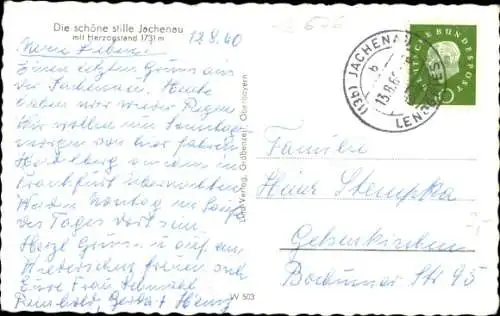 Die schöne stille Jachenau
mit Herzogstand 1731 m
12.8.60
Meine Lieben
Einen letzten Gruss aus
der Jachenau. Heute
haben wir wieder Regen
Wir wollen am Sonntag
morgen von hier fahren
Heidelberg
Frankfurt übernachten
Montag im Laufe
des Tages dort sein
Herzl. Grüsse u. auf ein
Wiedersehen freuen sich
Eure
W 503
Lud-Verlag, Gröbenzell, Oberbayern
(13b) JACHENAU
13.8.60
LENGGRIES
DEUTSCHE BUNDESPOST
10
Familie
Heinz Stempka
Gelsenkirchen
Bochumer Str 95